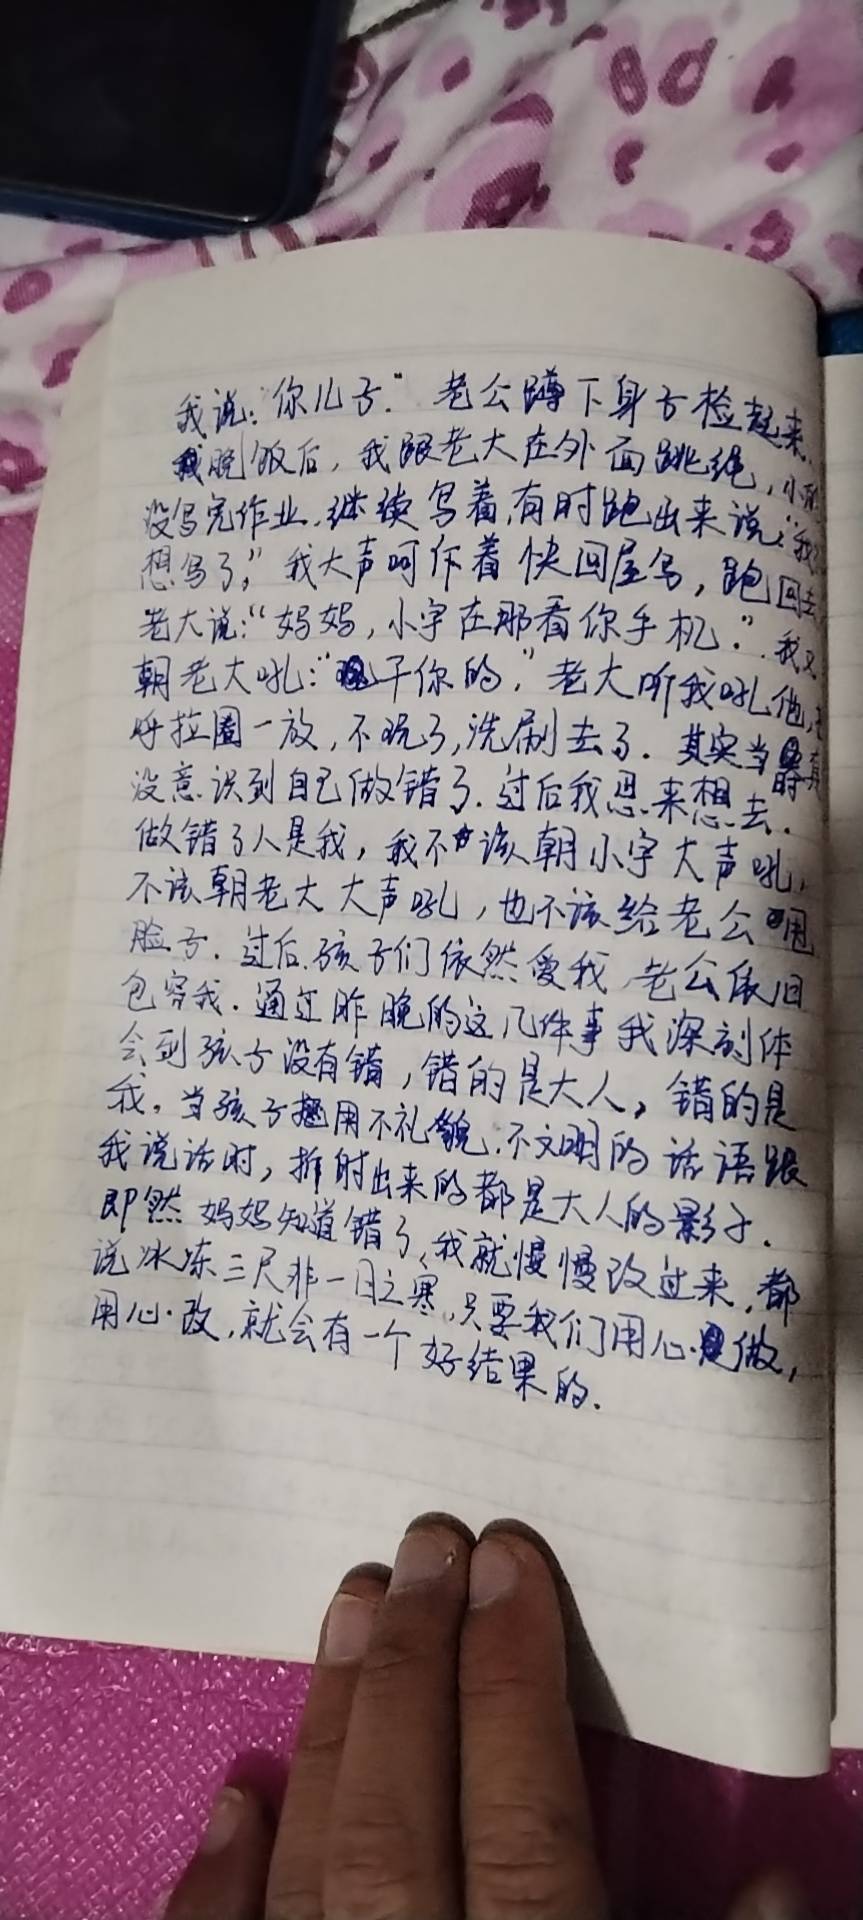 我说:“你儿子.”老公蹲下身子检起来.
晚饭后,我跟老大在外面跳绳,小
没写完作业.继续写着,有时跑出来说:“我
想写了,”我大声呵斥着快回屋写,跑回去
老大说:“妈妈,小宇在那看你手机.”.我又
朝老大吼:“干你的,”老大听我吼他,
呼拉圈一放,不玩了,洗刷去了.其实当时真
没意识到自己做错了.过后我思来想去.
做错了人是我,我不该朝小宇大声吼,
不该朝老大大声吼,也不该给老公甩
脸子.过后.孩子们依然爱我,老公依旧
包容我.通过昨晚的这几件事我深刻体
会到孩子没有错,错的是大人,错的是
我.当孩子用不礼貌.不文明的话语跟
我说话时,折射出来的都是大人的影子.
即然妈妈知道错了,我就慢慢改过来,都
说冰冻三尺非一日之寒,只要我们用心做,
用心改,就会有一个好结果的.